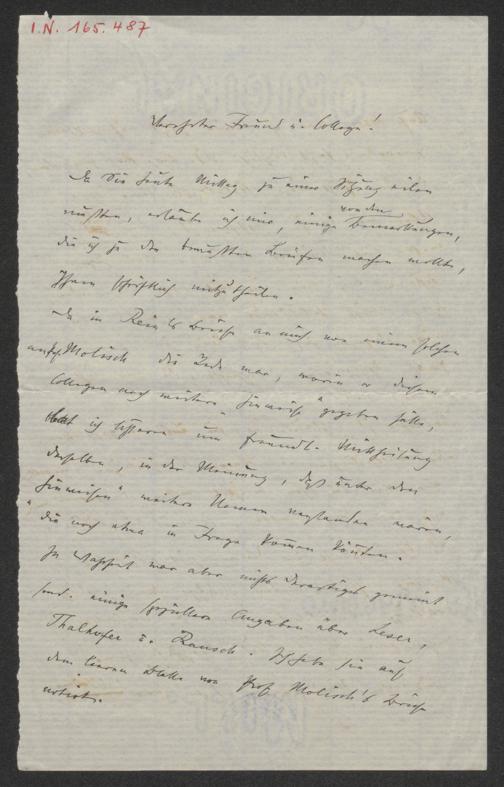 I.N. 165.487
Verehrter Freund u. College!
Da Sie heute Mittag zu einer Sitzung eilen
mußten, erlaube ich mir, einige von den Bemerkungen,
die ich zu den bewußten Briefen machen wollte,
Ihnen schriftlich mitzutheilen.
Da in Rein's Briefe an mich von einem solchen
an Prof. Molisch die Rede war, worin er diesem
Collegen noch weitere "Hinweise" gegeben hätte,
bat ich letzteren um freundl. Mittheilung
derselben, in der Meinung, daß unter den
"Hinweisen" weitere Namen verstanden wären,
die noch etwa in Frage kommen könnten.
In Wahrheit war aber nichts Derartiges gemeint
sond. einige speziellere Angaben über Leser,
Thalhofer u. Rausch. Ich habe sie auf
dem leeren Blatte von Prof. Molisch's Briefe
notirt.